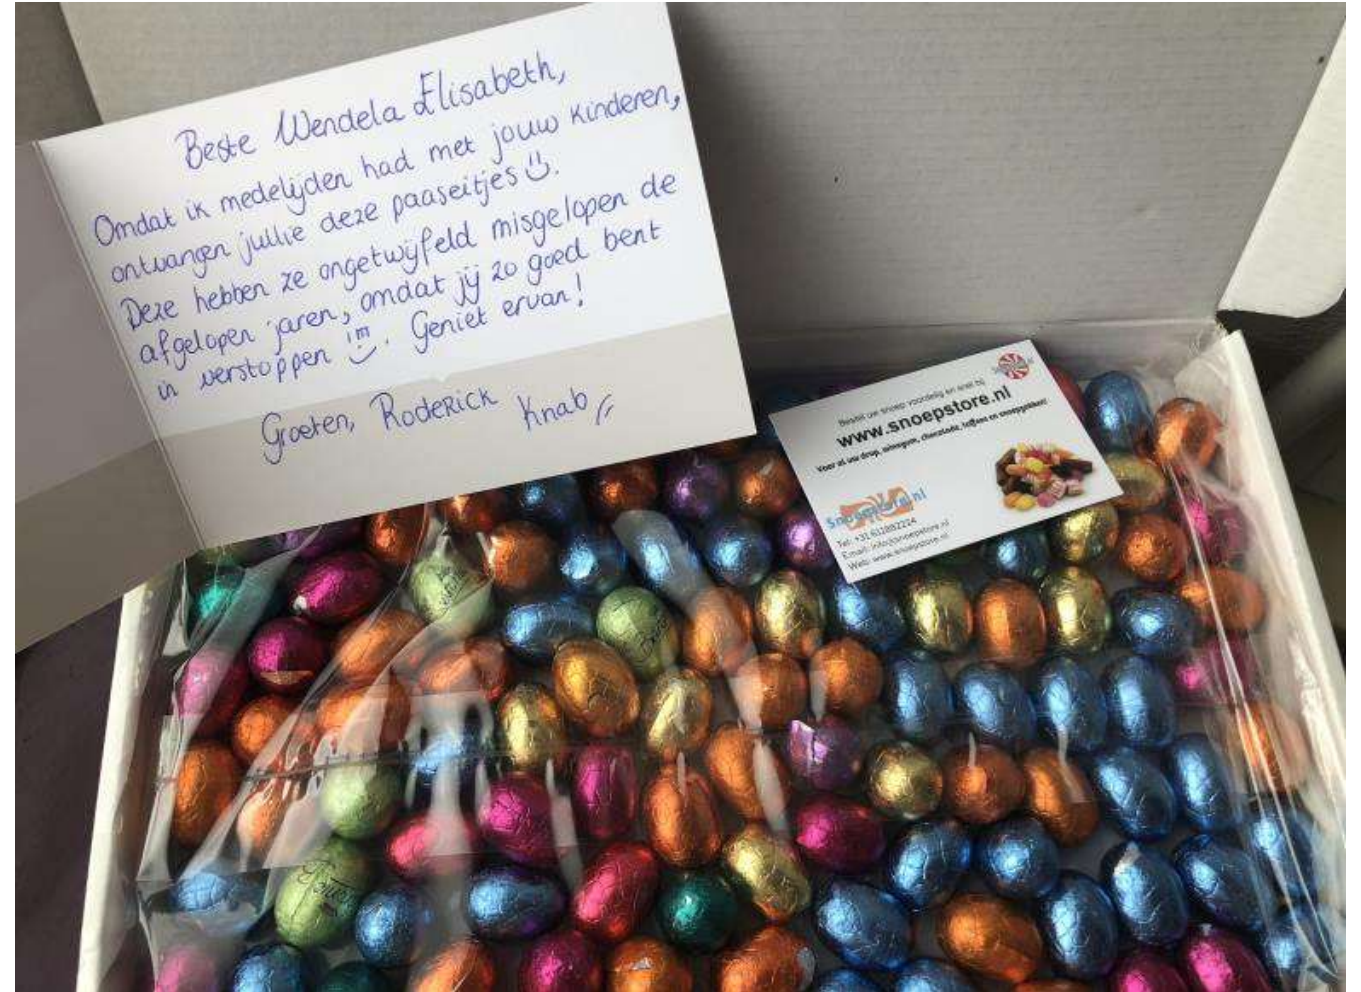 Beste Wendela Elisabeth,
Omdat ik medelijden had met jouw kinderen,
ontvangen jullie deze paaseitjes
Deze hebben ze ongetwijfeld misgelopen de
afgelopen jaren, omdat jij zo goed bent
in verstoppen. Geniet ervan!
Groeten, Roderick Knab
Bestel uw snoep voordelig en snel bij
www.snoepstore.nl
Voor al uw drop, winegum, chocolade, toffees en snoepzakken!
Snoepstore.nl
Tel: +31 611882224
Email: info@snoepstore.nl
Web: www.snoepstore.nl